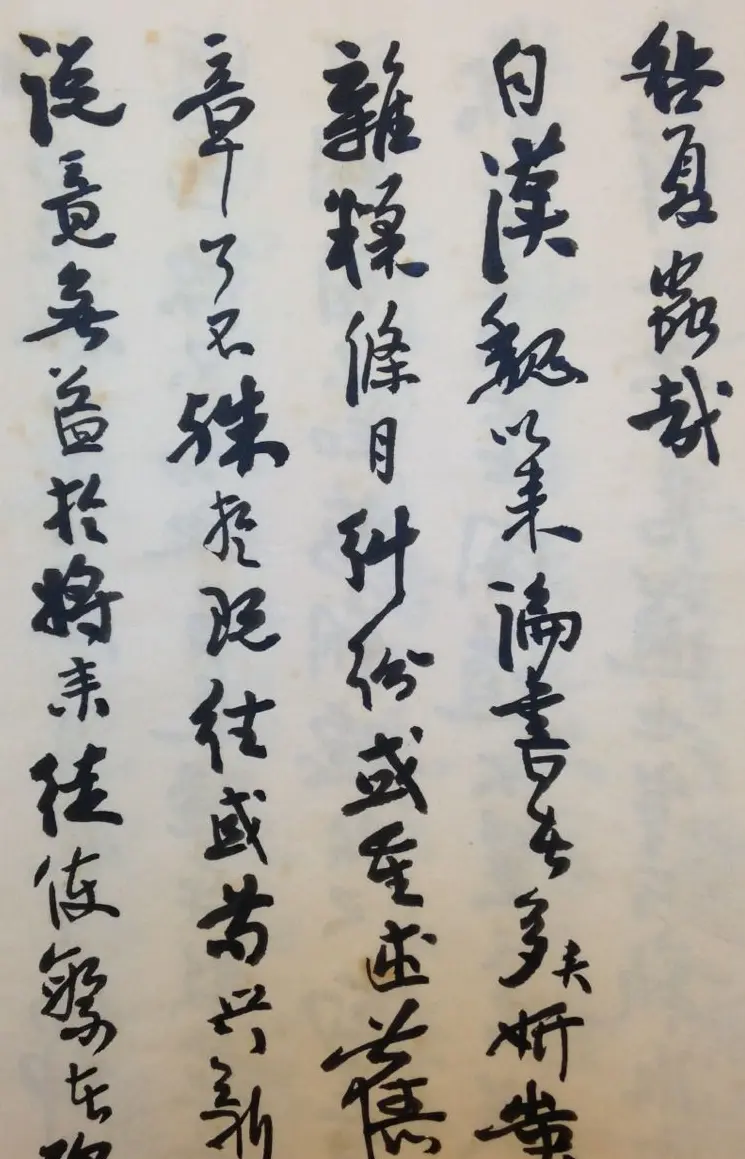 咎夏蟲哉
自漢魏以来論書者多矣妍蚩
雜糅條目糾紛或重述舊
章了不殊於既往或苟興新
说竟無益於將来徒使繁者